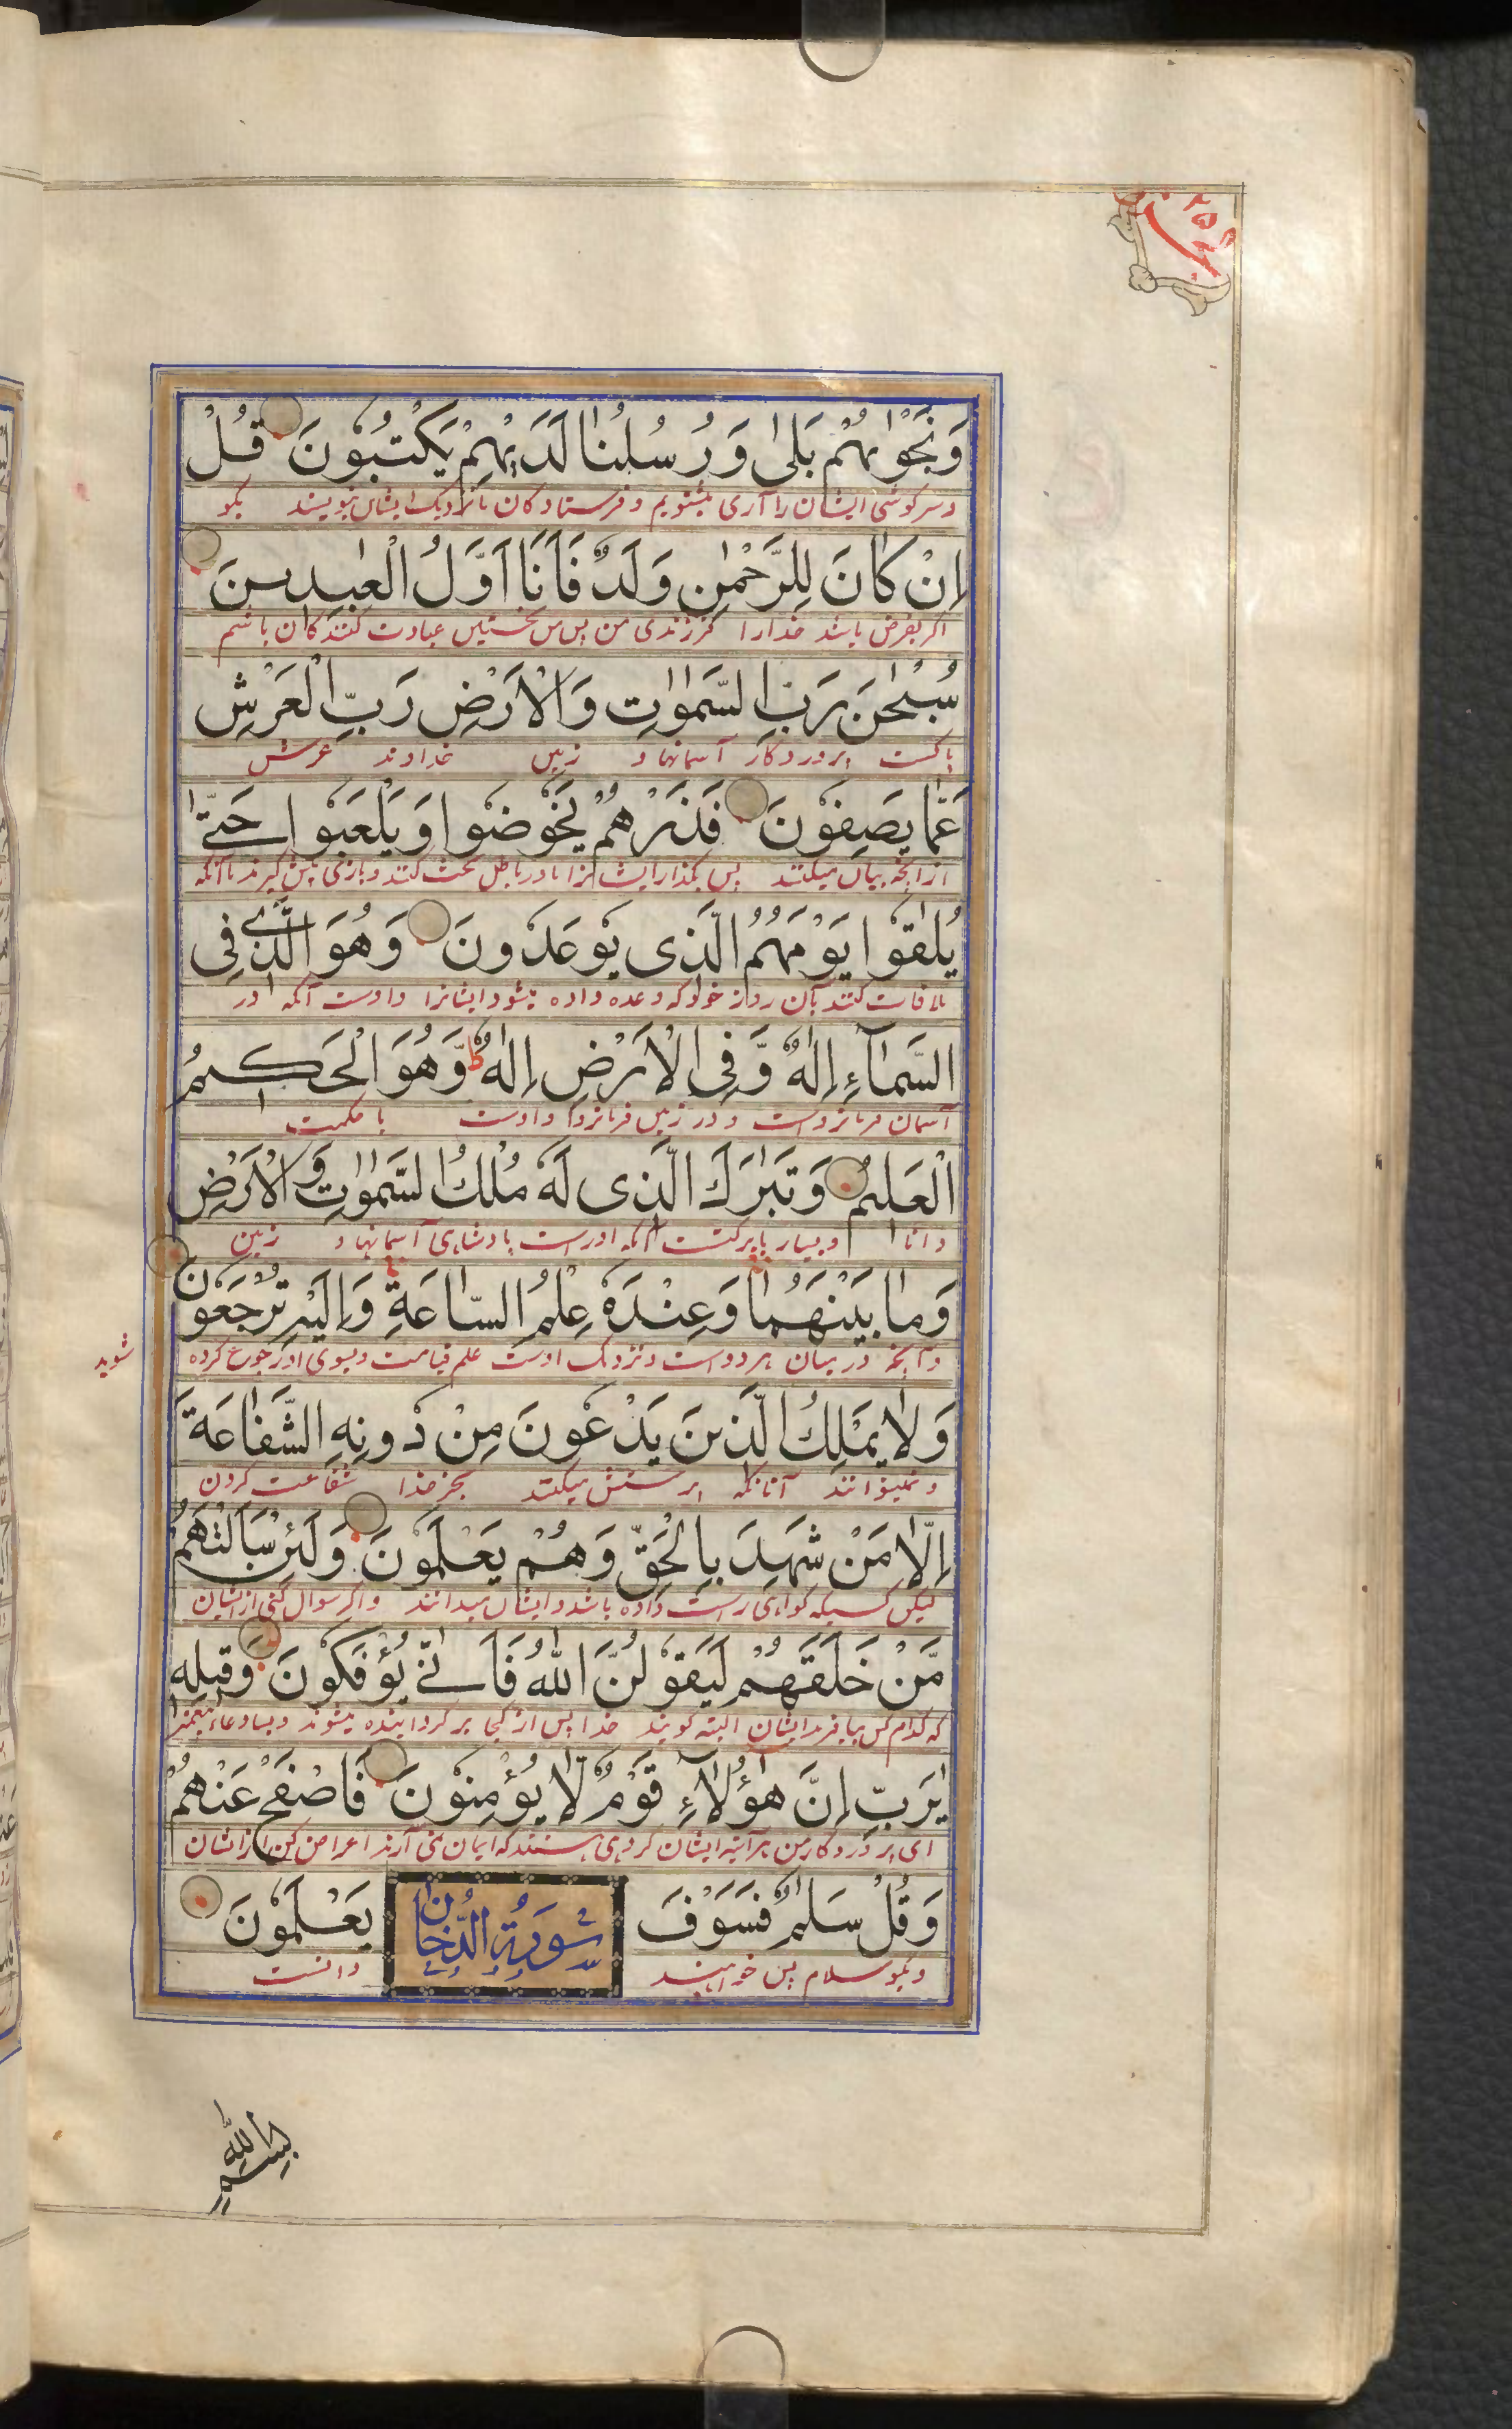 وَنَجْوٰىهُمْ بَلٰى وَرُسُلُنٰا لَدَيْهِمْ يَكْتُبُوْنَ قُلْ
و سرکوشی ایشان را آری میشنویم و فرستادکان ما نزدیک ایشان مینویسند بکو
اِنْ كٰانَ لِلرَّحْمٰنِ وَلَدٌ فَاَنَا اَوَّلُ الْعٰبِدِينَ
اکر بفرض باشد خدارا فرزندی من پس من نخستین عبادت کنندکان باشم
سُبْحٰنَ رَبِّ السَّمٰوٰاتِ وَالْاَرْضِ رَبِّ الْعَرْشِ
پاکست پروردکار آسمانها و زمین خداوند عرش
عَمّٰا يَصِفُوْنَ فَذَرْهُمْ يَخُوْضُوْا وَيَلْعَبُوْا حَتّٰى
ازانچه بیان میکنند پس بکذار ایشانرا تا در باطل بحث کنند و بازی پیش کیرند تا آنکه
يُلٰقُوْا يَوْمَهُمُ الَّذِى يُوْعَدُونَ وَهُوَ الَّذِى فِى
ملاقات کنند بآن روز خود که وعده داده میشود ایشانرا و اوست آنکه در
السَّمٰآءِ اِلٰهٌ وَّفِى الْاَرْضِ اِلٰهٌ ط وَّهُوَ الْحَكِيمُ
آسمان فرمانرواست و در زمین فرمانروا و اوست با حکمت
الْعَلِيمُ وَتَبٰرَكَ الَّذِى لَهٗ مُلْكُ السَّمٰوٰاتِ وَالْاَرْضِ
دانا و بسیار با برکتست آنکه اوراست پادشاهی آسمانها و زمین
وَمٰا بَيْنَهُمٰا وَعِنْدَهٗ عِلْمُ السّٰاعَةِ وَاِلَيْهِ تُرْجَعُوْنَ
و آنچه در میان هر دو است و نزدیک اوست علم قیامت و بسوی او رجوع کرده
شوید
وَلٰا يَمْلِكُ الَّذِينَ يَدْعُوْنَ مِنْ دُونِهِ الشَّفٰاعَةَ
و نمیتوانند آنانکه پرستش میکنند بجز خدا شفاعت کردن
اِلّٰا مَنْ شَهِدَ بِالْحَقِّ وَهُمْ يَعْلَمُوْنَ وَلَئِنْ سَاَلْتَهُمْ
لیکن کسیکه کواهی راست داده باشد و ایشان میدانند و اکر سوال کنی از ایشان
مَّنْ خَلَقَهُمْ لَيَقُوْلُنَّ اللّٰهُ فَاَنّٰى يُؤْفَكُوْنَ وَقِيلِهِ
که کدام کس بیافرید ایشان البته کویند خدا پس از کجا برکردانیده میشوند و بسا دعاء پیغمبر
يٰرَبِّ اِنَّ هٰؤُلٰآءِ قَوْمٌ لّٰا يُؤْمِنُوْنَ فَاصْفَحْ عَنْهُمْ
ای پروردکار من هرآینه ایشان کروهی هستند که ایمان نمی آرند اعراض کن از ایشان
وَقُلْ سَلٰمٌ فَسَوْفَ يَعْلَمُوْنَ
سُورَةُ الدُّخٰانِ
و بکو سلام پس خواهند دانست
بِسْمِ اللّٰهِ